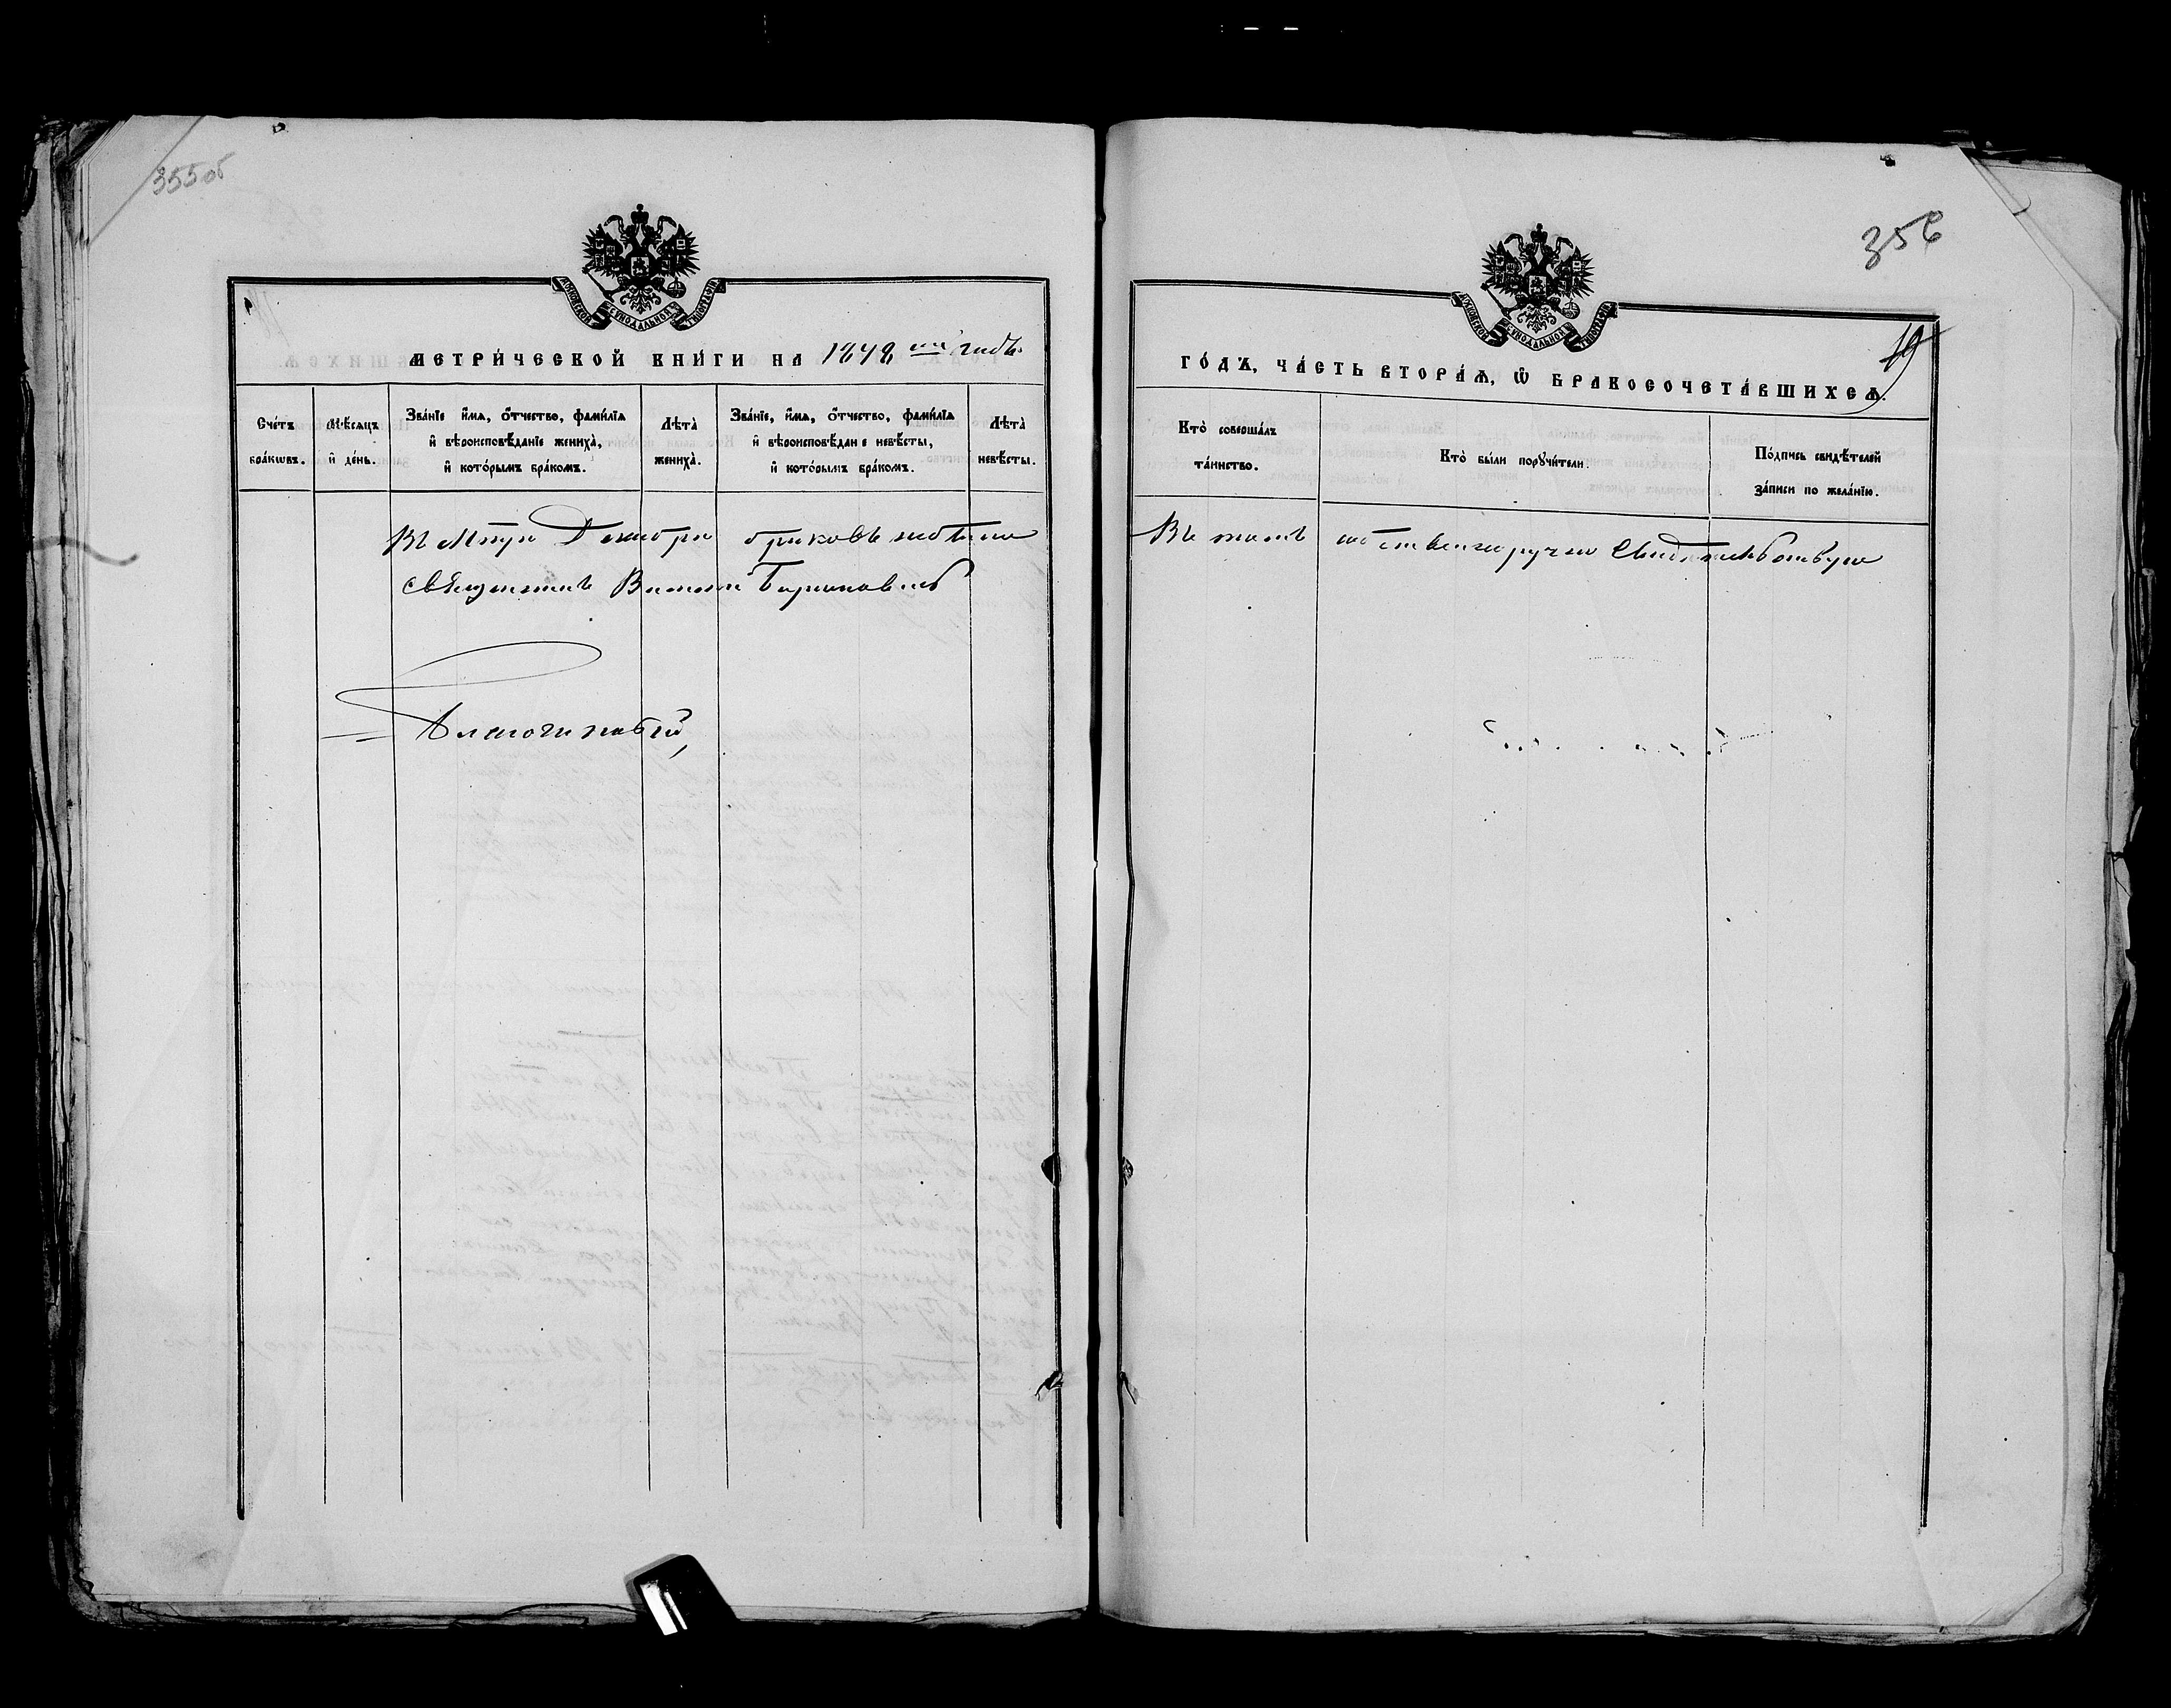 355об
МЕТРИ́ЧЕСКОЙ КНИ́ГИ НА 1848 ый годъ
Сче́тъ бра́кѡвъ.
Мѣ́сяцъ и҆ де́нь.
Зва́нїе и҆́мѧ, ѻ҆́тчество, фами́лїѧ и҆ вѣроисповѣ́данїе жениха̀, и҆ кото́рымъ бра́комъ.
Лѣ́та жениха̀.
Зва́нїе, и҆́мѧ, ѻ҆́тчество, фами́лїѧ и҆ вѣроисповѣ́данїе невѣ́сты, и҆ кото́рымъ бра́комъ.
Лѣ́та невѣ́сты.
Въ Мцѣ Декабрѣ браковъ небыло
Священникъ Василій
Благочинный
356
19
ГО́ДЪ, ЧА́СТЬ ВТОРА́Ѧ, Ѽ БРАКОСОЧЕТА́ВШИХСѦ.
Кто̀ соверша́лъ та́инство.
Кто̀ бы́ли порꙋчи́тели.
По́дпись свидѣ́телей за́писи по жела́нїю.
Въ томъ собственноручно Свидѣтельствую